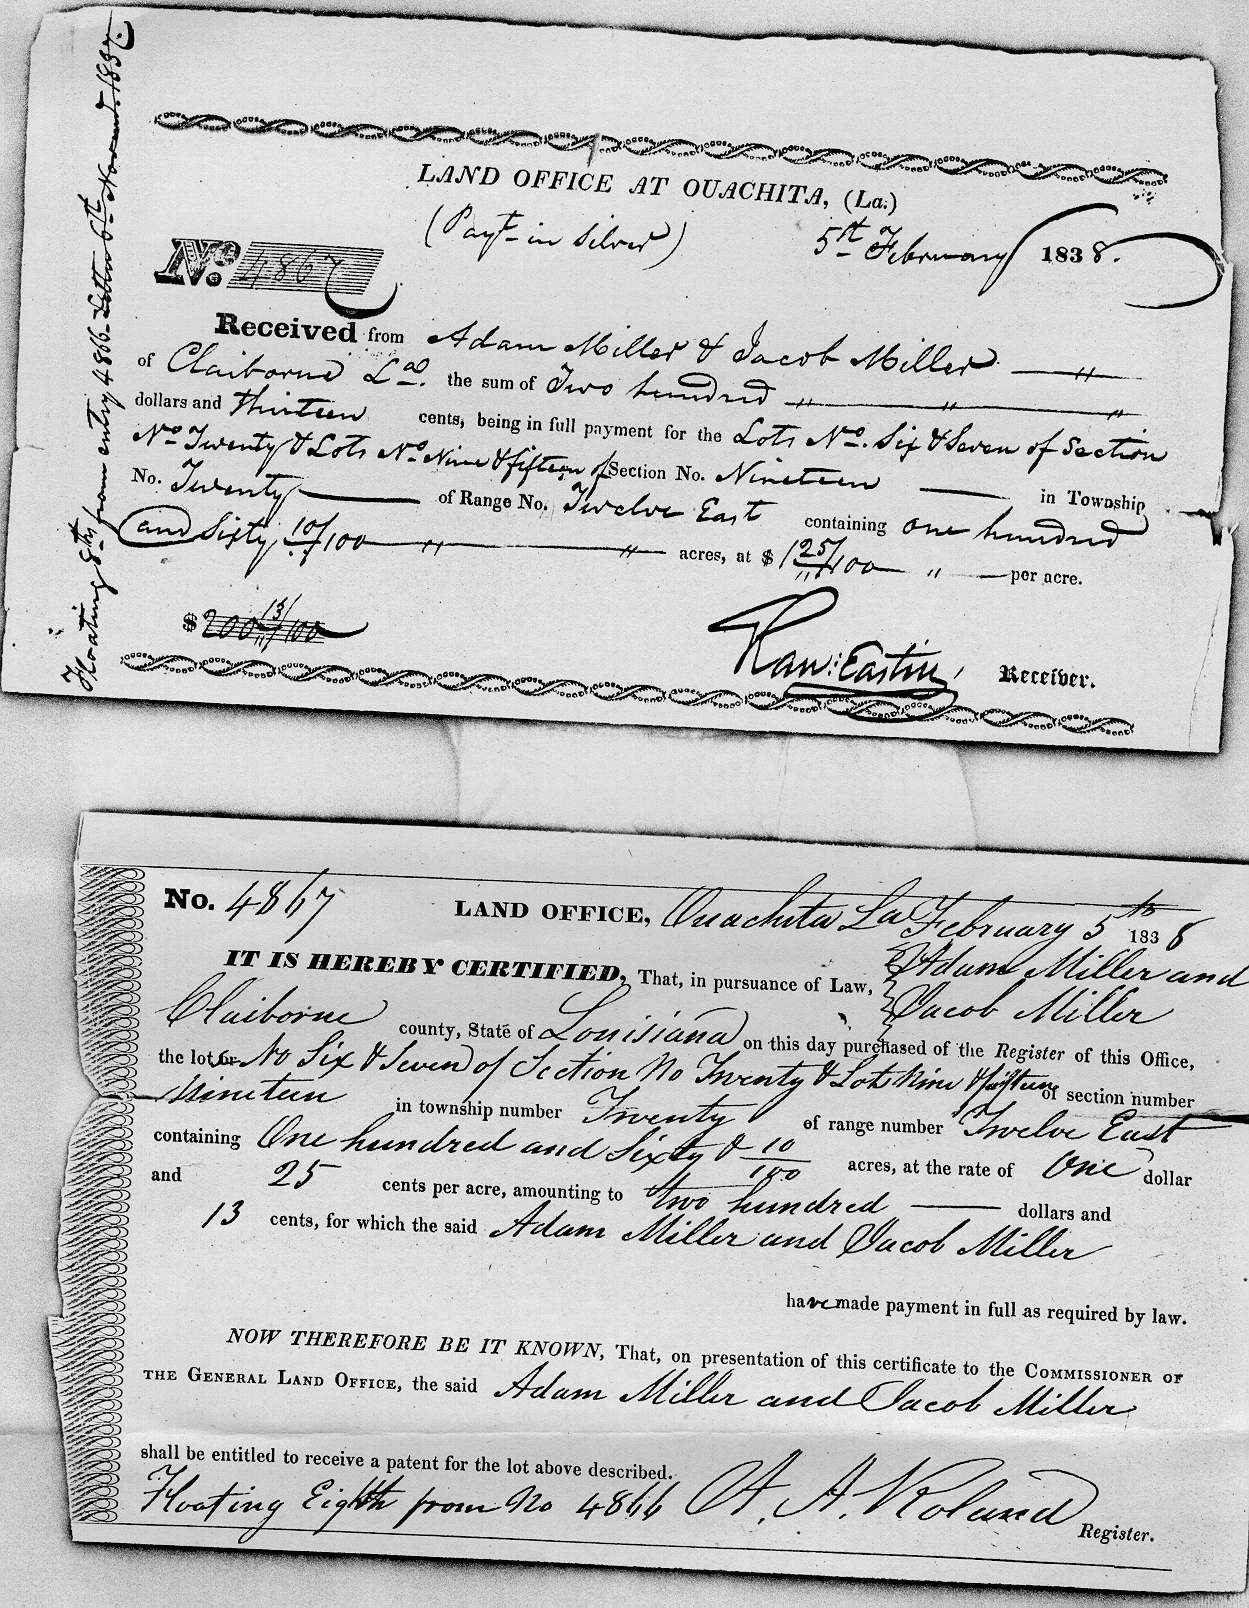 LAND OFFICE AT OUACHITA, (La.)
(Payt. in Silver) 5th February 1838.
No. 4867
Received from Adam Miller & Jacob Miller — " —
of Claiborne La. the sum of Two hundred — " — " — "
dollars and thirteen cents, being in full payment for the Lots No. Six & Seven of Section
No. Twenty & Lots No. Nine & fifteen of Section No. Nineteen — in Township
No. Twenty — of Range No. Twelve East containing one hundred
and Sixty 10/100 — " — " — acres, at $ 1 25/100 — " — per acre.
$200 13/100
Receiver.
Floating 8th from entry 4866 – Letter 6th Novemr. 1837.
No. 4867 LAND OFFICE, Ouachita La February 5th 1838
IT IS HEREBY CERTIFIED, That, in pursuance of Law, Adam Miller and
Jacob Miller
Claiborne county, State of Louisiana on this day purchased of the Register of this Office,
the lot or No Six & Seven of Section No Twenty & Lots Nine & fifteen of section number
Nineteen in township number Twenty of range number Twelve East
containing One hundred and Sixty & 10/100 acres, at the rate of One dollar
and 25 cents per acre, amounting to two hundred — dollars and
13 cents, for which the said Adam Miller and Jacob Miller
have made payment in full as required by law.
NOW THEREFORE BE IT KNOWN, That, on presentation of this certificate to the COMMISSIONER OF
THE GENERAL LAND OFFICE, the said Adam Miller and Jacob Miller
shall be entitled to receive a patent for the lot above described.
Floating Eighth from No 4866 Register.